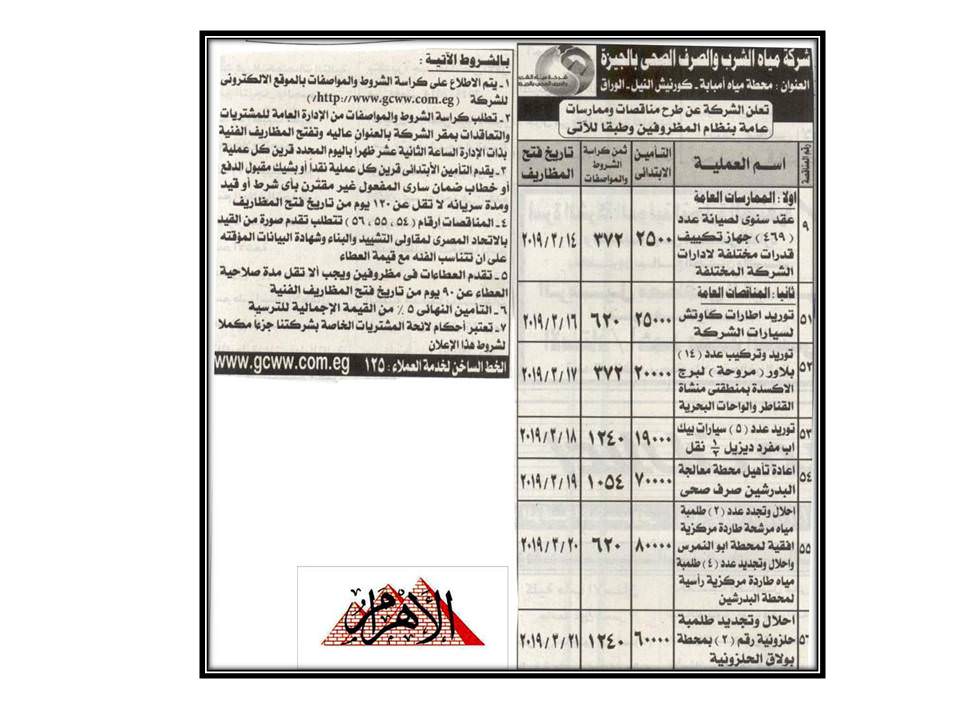 شركة مياه الشرب والصرف الصحى بالجيزة
العنوان : محطة مياه أمبابة ـ كورنيش النيل ـ الوراق
تعلن الشركة عن طرح مناقصات وممارسات
عامة بنظام المظروفين وطبقا للآتى
رقم المناقصة | اسم العملية | التأمين الابتدائى | ثمن كراسة الشروط والمواصفات | تاريخ فتح المظاريف
اولا : الممارسات العامة
٩ | عقد سنوى لصيانة عدد | ٢٥٠٠ | ٣٧٢ | ٢٠١٩/٣/١٤
(٤٦٩) جهاز تكييف
قدرات مختلفة لادارات
الشركة المختلفة
ثانيا : المناقصات العامة
٥١ | توريد اطارات كاوتش | ٢٥٠٠٠ | ٦٢٠ | ٢٠١٩/٣/١٦
لسيارات الشركة
٥٢ | توريد وتركيب عدد (١٤) | ٢٠٠٠٠ | ٣٧٢ | ٢٠١٩/٣/١٧
بلاور (مروحة) لبرج
الاكسدة بمنطقتى منشاة
القناطر والواحات البحرية
٥٣ | توريد عدد (٥) سيارات بيك | ١٩٠٠٠ | ١٢٤٠ | ٢٠١٩/٣/١٨
اب مفرد ديزيل ١/٢ نقل
٥٤ | اعادة تأهيل محطة معالجة | ٧٠٠٠٠ | ١٠٥٤ | ٢٠١٩/٣/١٩
البدرشين صرف صحى
٥٥ | احلال وتجدد عدد (٢) طلمبة | ٨٠٠٠٠ | ٦٢٠ | ٢٠١٩/٣/٢٠
مياه مرشحة طاردة مركزية
افقية لمحطة ابو النمرس
واحلال وتجديد عدد (٤) طلمبة
مياه طاردة مركزية رأسية
لمحطة البدرشين
احلال وتجديد طلمبة | ٦٠٠٠٠ | ١٢٤٠ | ٢٠١٩/٣/٢١
حلزونية رقم (٢) بمحطة
بولاق الحلزونية
بالشروط الآتية :
١ ـ يتم الاطلاع على كراسة الشروط والمواصفات بالموقع الالكترونى
للشركة (http://www.gcww.com.eg/)
٢ ـ تطلب كراسة الشروط والمواصفات من الإدارة العامة للمشتريات
والتعاقدات بمقر الشركة بالعنوان عاليه وتفتح المظاريف الفنية
بذات الإدارة الساعة الثانية عشر ظهراً باليوم المحدد قرين كل عملية
٣ ـ يقدم التأمين الأبتدائى قرين كل عملية نقداً أو بشيك مقبول الدفع
أو خطاب ضمان سارى المفعول غير مقترن بأى شرط أو قيد
ومدة سريانه لا تقل عن ١٢٠ يوم من تاريخ فتح المظاريف
٤ ـ المناقصات ارقام (٥٤ ، ٥٥ ، ٥٦) تتطلب تقدم صورة من القيد
بالاتحاد المصرى لمقاولى التشييد والبناء وشهادة البيانات المؤقته
على ان تتناسب الفئه مع قيمة العطاء
٥ ـ تقدم العطاءات فى مظروفين ويجب ألا تقل مدة صلاحية
العطاء عن ٩٠ يوم من تاريخ فتح المظاريف الفنية
٦ ـ التأمين النهائى ٥٪ من القيمة الإجمالية للترسية
٧ ـ تعتبر أحكام لائحة المشتريات الخاصة بشركتنا جزءاً مكملا
لشروط هذا الإعلان
الخط الساخن لخدمة العملاء : ١٢٥ www.gcww.com.eg
الأهرام